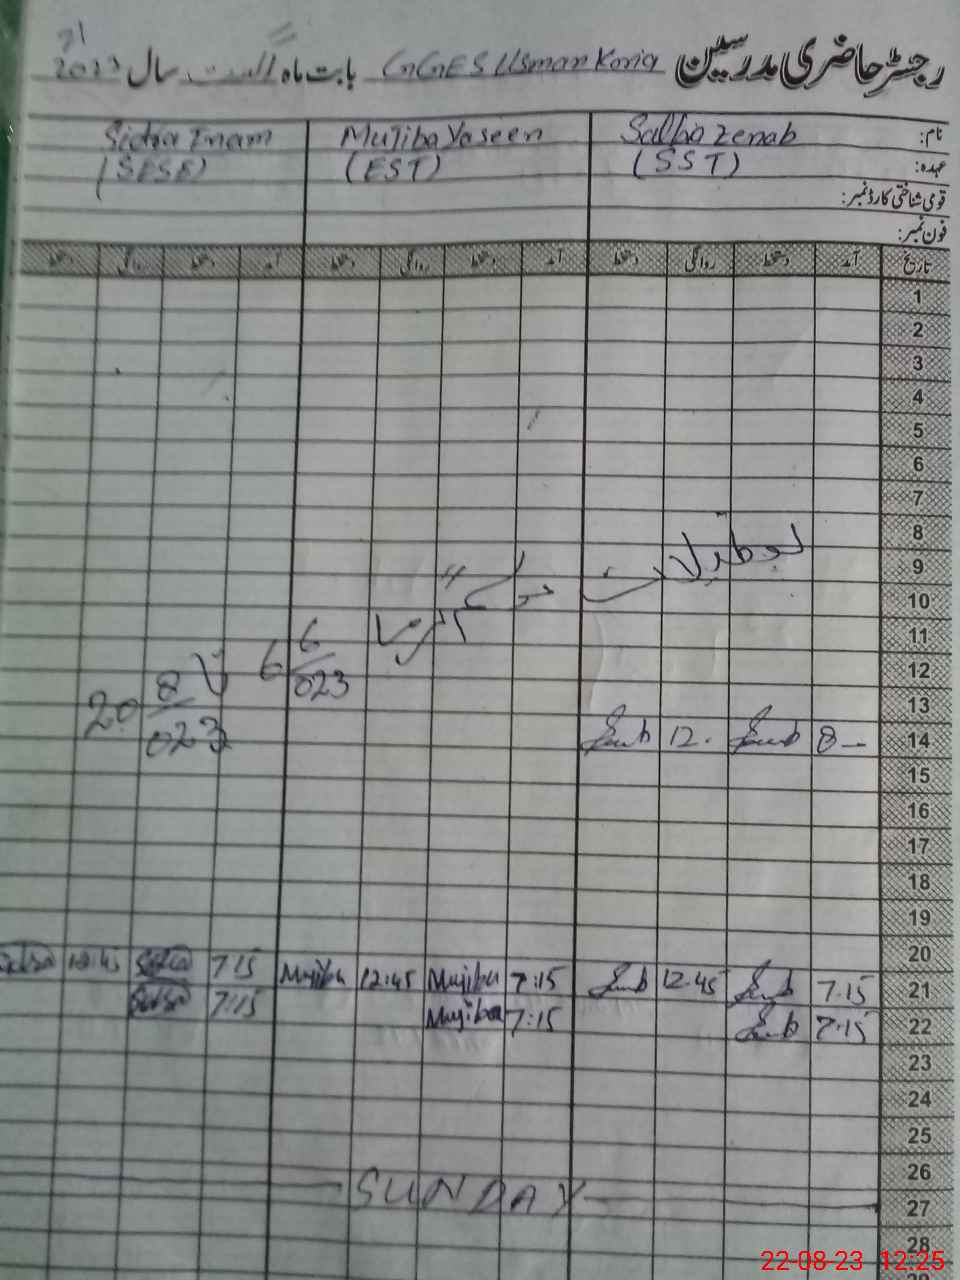 رجسٹر حاضری مدرسین GGES Usman Koria بابت ماہ اگست سال 2023
نام: Salba Zenab Mujiba Yaseen Sidra Enam
عہدہ: (SST) (EST) (SESE)
قومی شناختی کارڈ نمبر:
فون نمبر:
تاریخ آمد دستخط روانگی دستخط آمد دستخط روانگی دستخط آمد دستخط روانگی دستخط
1
2
3
4
5
6
7
8
9
10
11
12
13
14 8 12.
15
16
17
18
19
20
21 7.15 12.45 7:15 Mujiba 12:45 Mujiba 7:15 Sidra 12:45 Sidra
22 7.15 7:15 Mujiba 7:15 Sidra
23
24
25
26
27 SUNDAY
28
6 6/023
20 8/023
22-08-23 12:25